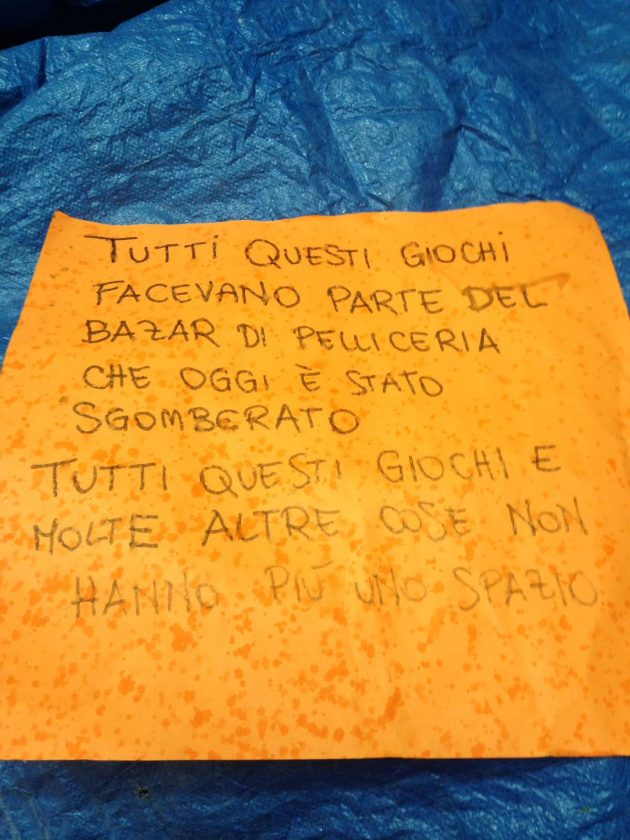 TUTTI QUESTI GIOCHI
FACEVANO PARTE DEL
BAZAR DI PELLICERIA
CHE OGGI È STATO
SGOMBERATO
TUTTI QUESTI GIOCHI E
MOLTE ALTRE COSE NON
HANNO PIÙ UNO SPAZIO